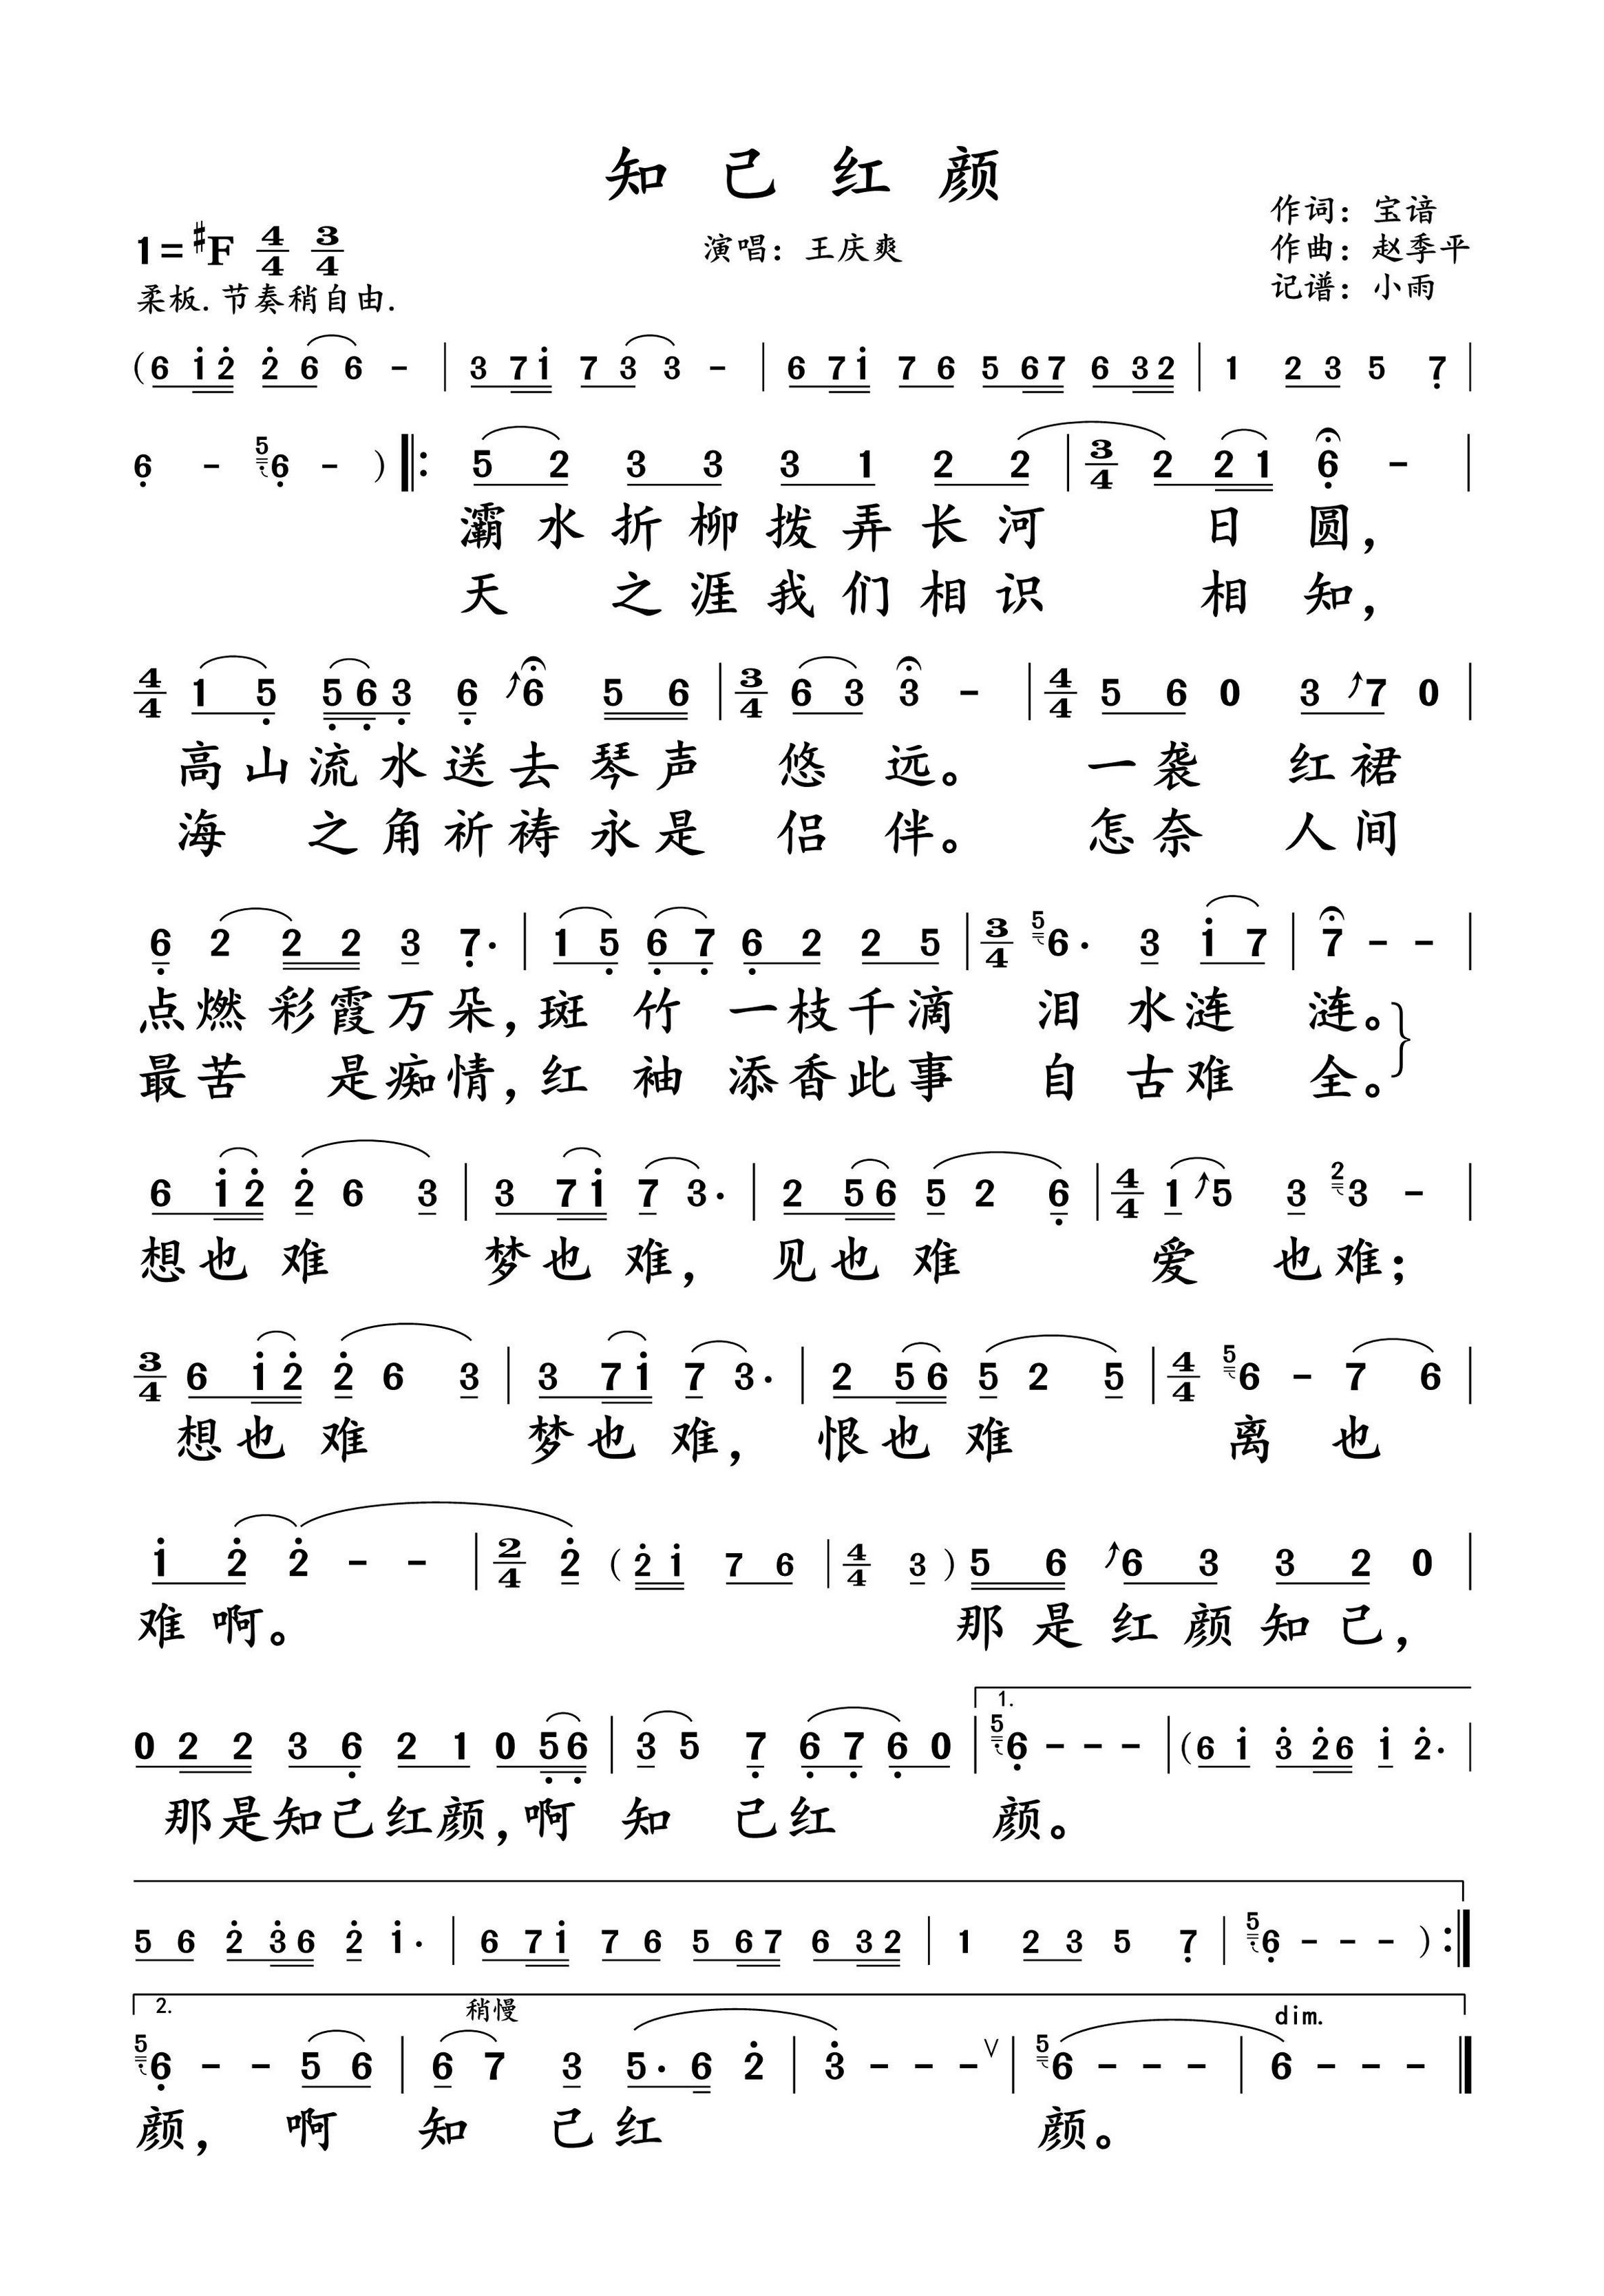 知己红颜
作词：宝谙
1=♯F 4/4 3/4 演唱：王庆爽 作曲：赵季平
柔板.节奏稍自由. 记谱：小雨
(6 1̇2̇ 2̇6 6 - | 3 71̇ 73 3 - | 6 71̇ 76 567 632 | 1 23 5 7̣ |
6̣ - 5 6̣ - ) ‖: 5 2 3 3 3 1 2 2 | 3/4 2 21 6̣ - |
灞水折柳拨弄长河 日圆，
天 之涯我们相识 相知，
4/4 1 5̣ 5̣6̣3̣ 6̣ 6 5 6 | 3/4 6 3 3 - | 4/4 5 6 0 3 7 0 |
高山流水送去琴声 悠 远。 一袭 红裙
海 之角祈祷永是 侣 伴。 怎奈 人间
6̣ 2 2 2 3 7̣. | 1 5̣ 6̣ 7̣ 6̣ 2 2 5 | 3/4 5 6. 3 1̇ 7 | 7 - - |
点燃彩霞万朵，斑 竹 一枝千滴 泪 水涟 涟。
最苦 是痴情，红 袖 添香此事 自 古难 全。
6 1̇2̇ 2̇ 6 3 | 3 71̇ 7 3. | 2 56 5 2 6̣ | 4/4 1 5 3 2 3 - |
想也难 梦也难，见也难 爱 也难；
3/4 6 1̇2̇ 2̇ 6 3 | 3 71̇ 7 3. | 2 56 5 2 5 | 4/4 5 6 - 7 6 |
想也难 梦也难，恨也难 离 也
1̇ 2̇ 2̇ - - | 2/4 2̇ (2̇1̇ 7 6 | 4/4 3 ) 5 6 6 3 3 2 0 |
难啊。 那是红颜知己，
0 2 2 3 6̣ 2 1 0 5̣6̣ | 3 5 7̣ 6̣ 7̣ 6̣ 0 | 1. 5 6̣ - - - | (6 1̇ 3̇ 2̇6 1̇ 2̇. |
那是知己红颜，啊 知 己红 颜。
5 6 2̇ 3̇6 2̇ 1̇. | 6 71̇ 7 6 5 67 6 32 | 1 2 3 5 7̣ | 5 6̣ - - - ) :‖
2. 稍慢 dim.
5 6̣ - - 5 6 | 6 7 3 5. 6 2̇ | 3̇ - - - ∨ | 5 6 - - - | 6 - - - ‖
颜， 啊 知 己红 颜。